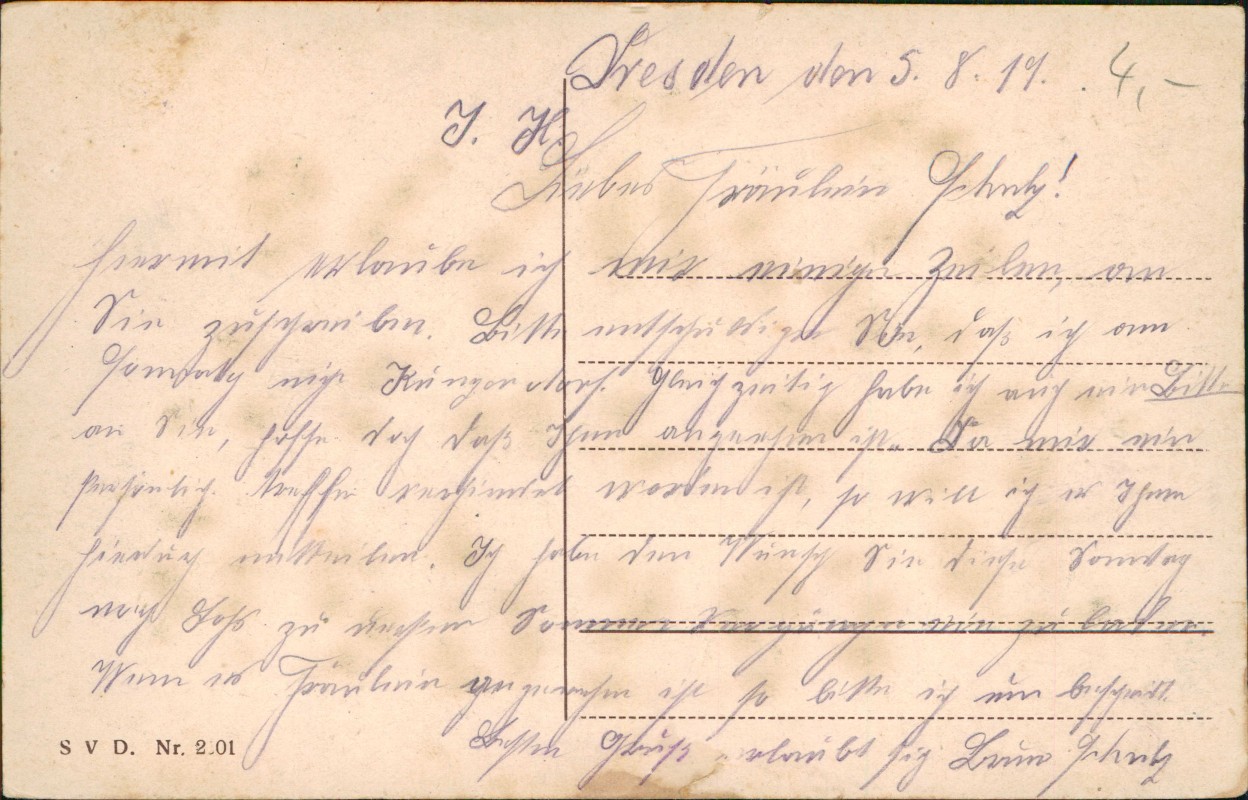 Dresden den 5. 8. 19. 4,-
J. H.
Liebes Fräulein Schulz!
Hiermit erlaube ich mir einige Zeilen, an
Sie zuschreiben. Bitte entschuldigen Sie, daß ich am
nich Gleichzeitig habe ich auch eine Bitte
an Sie, hoffe doch daß Ihnen angenehm ist. Da mir ein
persönlich treffen verhindert worden ist, so will ich es Ihnen
hierduch mitteilen. Ich habe den Wunsch Sie diesen Sonntag
nach zu unseren Sommer ein zu laden.
Wenn es Fräulein angenehm ist so bitte ich um bescheid.
Besten Gruß erlaubt sich Schulz
S V D. Nr. 2201